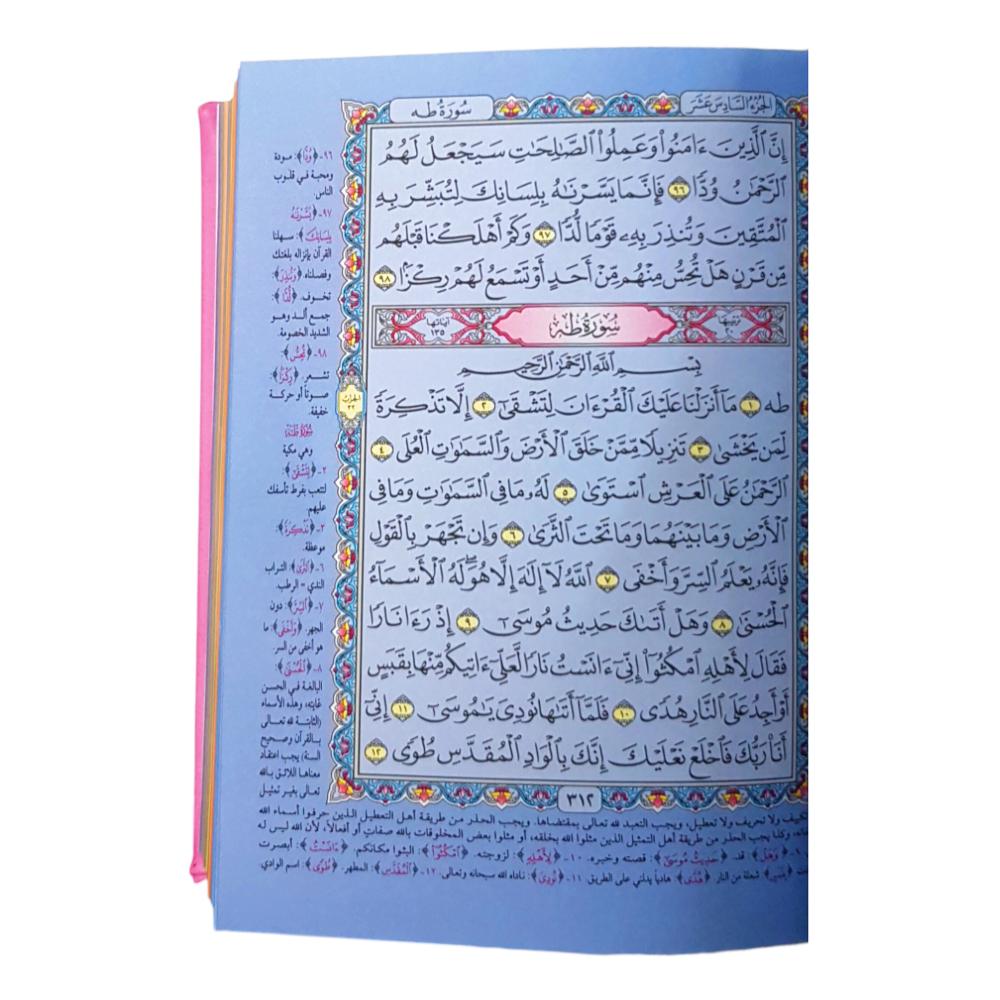 الجزء السادس عشر
سورة طه
إِنَّ ٱلَّذِينَ ءَامَنُوا۟ وَعَمِلُوا۟ ٱلصَّـٰلِحَـٰتِ سَيَجْعَلُ لَهُمُ
ٱلرَّحْمَـٰنُ وُدًّا ٩٦ فَإِنَّمَا يَسَّرْنَـٰهُ بِلِسَانِكَ لِتُبَشِّرَ بِهِ
ٱلْمُتَّقِينَ وَتُنذِرَ بِهِۦ قَوْمًا لُّدًّا ٩٧ وَكَمْ أَهْلَكْنَا قَبْلَهُم
مِّن قَرْنٍ هَلْ تُحِسُّ مِنْهُم مِّنْ أَحَدٍ أَوْ تَسْمَعُ لَهُمْ رِكْزًۢا ٩٨
ترتيبها ٢٠ سُورَةُ طه آياتها ١٣٥
بِسْمِ ٱللَّهِ ٱلرَّحْمَـٰنِ ٱلرَّحِيمِ
طه ١ مَآ أَنزَلْنَا عَلَيْكَ ٱلْقُرْءَانَ لِتَشْقَىٰٓ ٢ إِلَّا تَذْكِرَةً
لِّمَن يَخْشَىٰ ٣ تَنزِيلًا مِّمَّنْ خَلَقَ ٱلْأَرْضَ وَٱلسَّمَـٰوَٰتِ ٱلْعُلَى ٤
ٱلرَّحْمَـٰنُ عَلَى ٱلْعَرْشِ ٱسْتَوَىٰ ٥ لَهُۥ مَا فِى ٱلسَّمَـٰوَٰتِ وَمَا فِى
ٱلْأَرْضِ وَمَا بَيْنَهُمَا وَمَا تَحْتَ ٱلثَّرَىٰ ٦ وَإِن تَجْهَرْ بِٱلْقَوْلِ
فَإِنَّهُۥ يَعْلَمُ ٱلسِّرَّ وَأَخْفَى ٧ ٱللَّهُ لَآ إِلَـٰهَ إِلَّا هُوَ ۖ لَهُ ٱلْأَسْمَآءُ
ٱلْحُسْنَىٰ ٨ وَهَلْ أَتَىٰكَ حَدِيثُ مُوسَىٰٓ ٩ إِذْ رَءَا نَارًا
فَقَالَ لِأَهْلِهِ ٱمْكُثُوٓا۟ إِنِّىٓ ءَانَسْتُ نَارًا لَّعَلِّىٓ ءَاتِيكُم مِّنْهَا بِقَبَسٍ
أَوْ أَجِدُ عَلَى ٱلنَّارِ هُدًى ١٠ فَلَمَّآ أَتَىٰهَا نُودِىَ يَـٰمُوسَىٰٓ ١١ إِنِّىٓ
أَنَا۠ رَبُّكَ فَٱخْلَعْ نَعْلَيْكَ ۖ إِنَّكَ بِٱلْوَادِ ٱلْمُقَدَّسِ طُوًى ١٢
٣١٢
الحزب ٣٢
٩٦- ﴿وُدًّا﴾: مودة
ومحبة في قلوب
الناس.
٩٧- ﴿يَسَّرْنَـٰهُ
بِلِسَانِكَ﴾: سهلنا
القرآن بإنزاله بلغتك
وفصلناه، ﴿وَتُنذِرَ﴾:
تخوف. ﴿لُّدًّا﴾:
جمع ألد وهو
الشديد الخصومة.
٩٨- ﴿تُحِسُّ﴾:
تشعر. ﴿رِكْزًا﴾:
صوتاً أو حركة
خفيفة.
سورة طه
وهي مكية
٢- ﴿لِتَشْقَىٰ﴾:
لتتعب بفرط تأسفك
عليهم.
٣- ﴿تَذْكِرَةً﴾:
موعظة.
٦- ﴿ٱلثَّرَىٰ﴾: التراب
الندي = الرطب.
٧- ﴿ٱلسِّرَّ﴾: دون
الجهر. ﴿وَأَخْفَى﴾: ما
هو أخفى من السر.
٨- ﴿ٱلْحُسْنَىٰ﴾:
البالغة في الحسن
غايته، وهذه الأسماء
(الثابتة لله تعالى
بالقرآن وصحيح
السنة) يجب اعتقاد
معناها اللائق بالله
تعالى بغير تمثيل
ولا تحريف ولا تعطيل، ويجب التعبد لله تعالى بمقتضاها. ويجب الحذر من طريقة أهل التعطيل الذين حرفوا أسماء الله
وكذا يجب الحذر من طريقة أهل التمثيل الذين مثلوا الله بخلقه، أو مثلوا بعض المخلوقات بالله صفاتٍ أو أفعالاً، لأن الله ليس له
﴿وَهَلْ﴾: قد. ﴿حَدِيثُ مُوسَىٰ﴾: قصته وخبره. ١٠- ﴿لِأَهْلِهِ﴾: لزوجته. ﴿ٱمْكُثُوٓا۟﴾: البثوا مكانكم. ﴿ءَانَسْتُ﴾: أبصرت
شعلة من النار. ﴿هُدًى﴾: هادياً يدلني على الطريق. ١١- ﴿نُودِىَ﴾: ناداه الله سبحانه وتعالى. ١٢- ﴿ٱلْمُقَدَّسِ﴾: المطهر. ﴿طُوًى﴾: اسم الوادي.